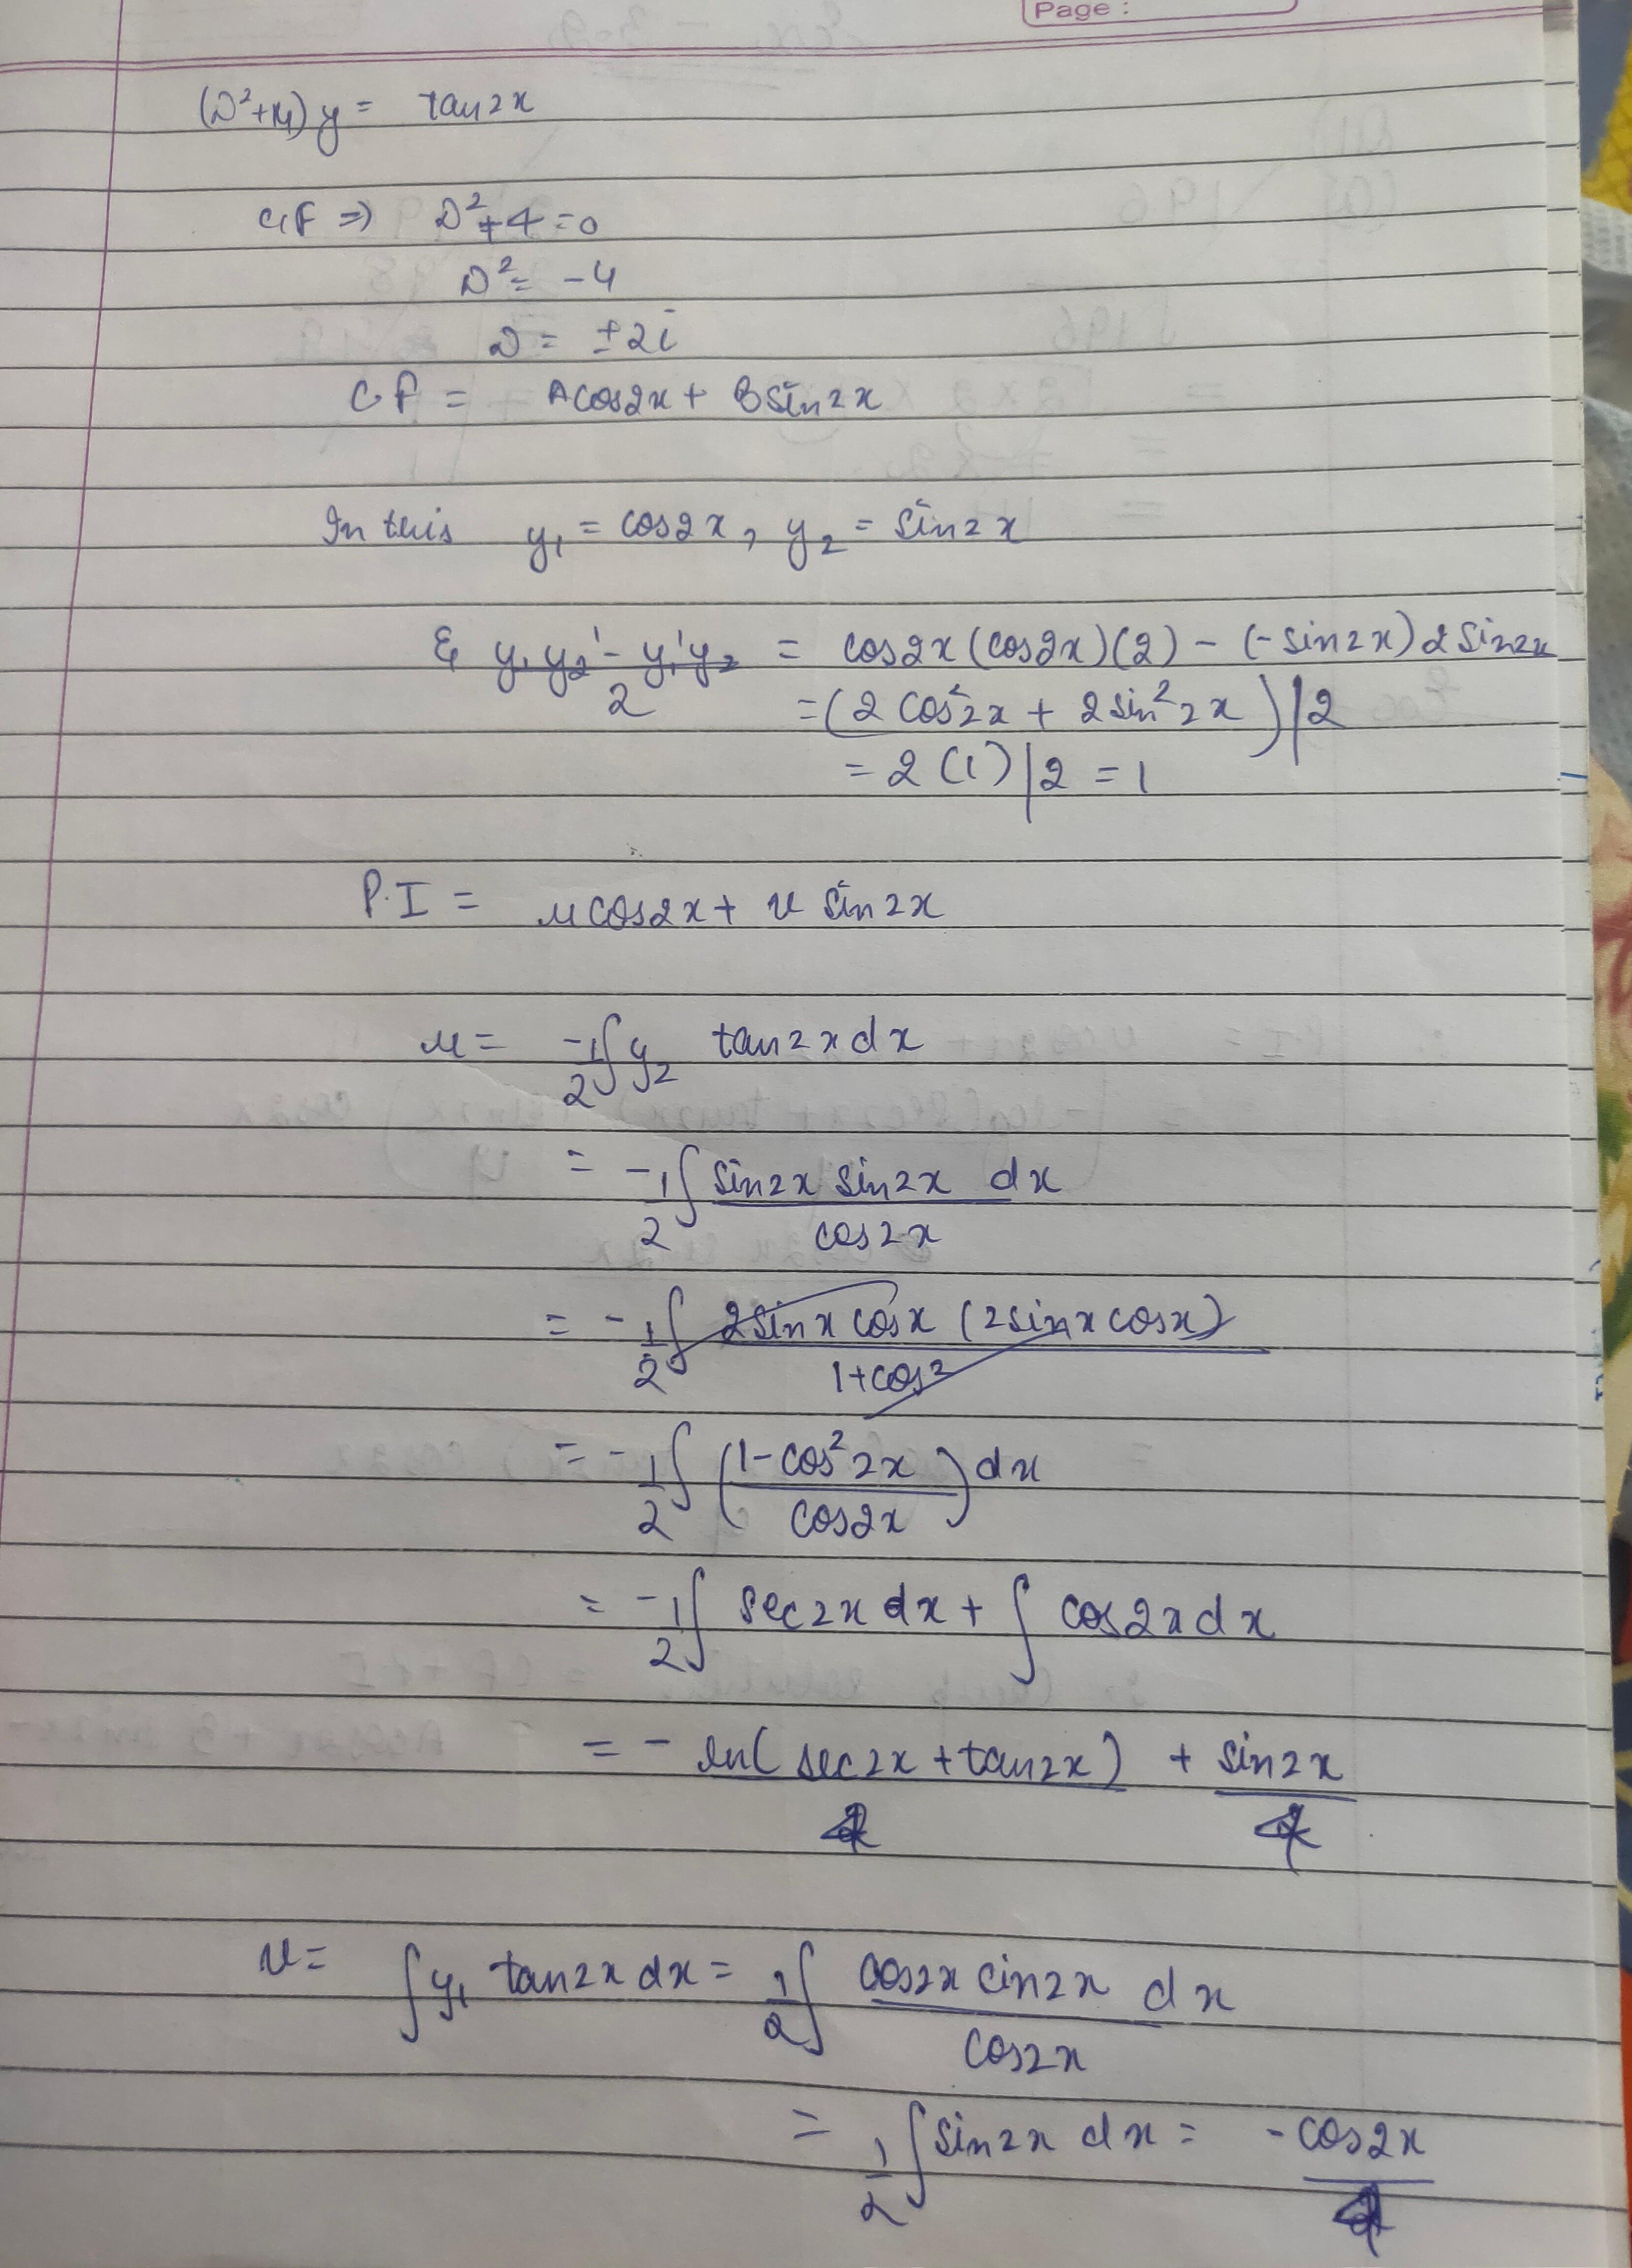 Page :
(D²+4)y = tan2x
C.F ⇒ D²+4=0
D² = -4
D = ±2i
C.F = Acos2x + Bsin2x
In this y₁ = cos2x, y₂ = sin2x
& (y₁y₂' - y₁'y₂)/2 = cos2x(cos2x)(2) - (-sin2x)2sin2x
= (2cos²2x + 2sin²2x)/2
= 2(1)/2 = 1
P.I = ucos2x + v sin2x
u = -1/2 ∫ y₂ tan2x dx
= -1/2 ∫ (sin2x sin2x dx)/cos2x
= -1/2 ∫ 2sinx cosx (2sinx cosx)/(1+cos²
= -1/2 ∫ ((1-cos²2x)/cos2x) dx
= -1/2 ∫ sec2x dx + ∫ cos2x dx
= - ln(sec2x + tan2x)/4 + sin2x/4
v = ∫ y₁ tan2x dx = 1/2 ∫ (cos2x sin2x)/cos2x dx
= 1/2 ∫ sin2x dx = -cos2x/4